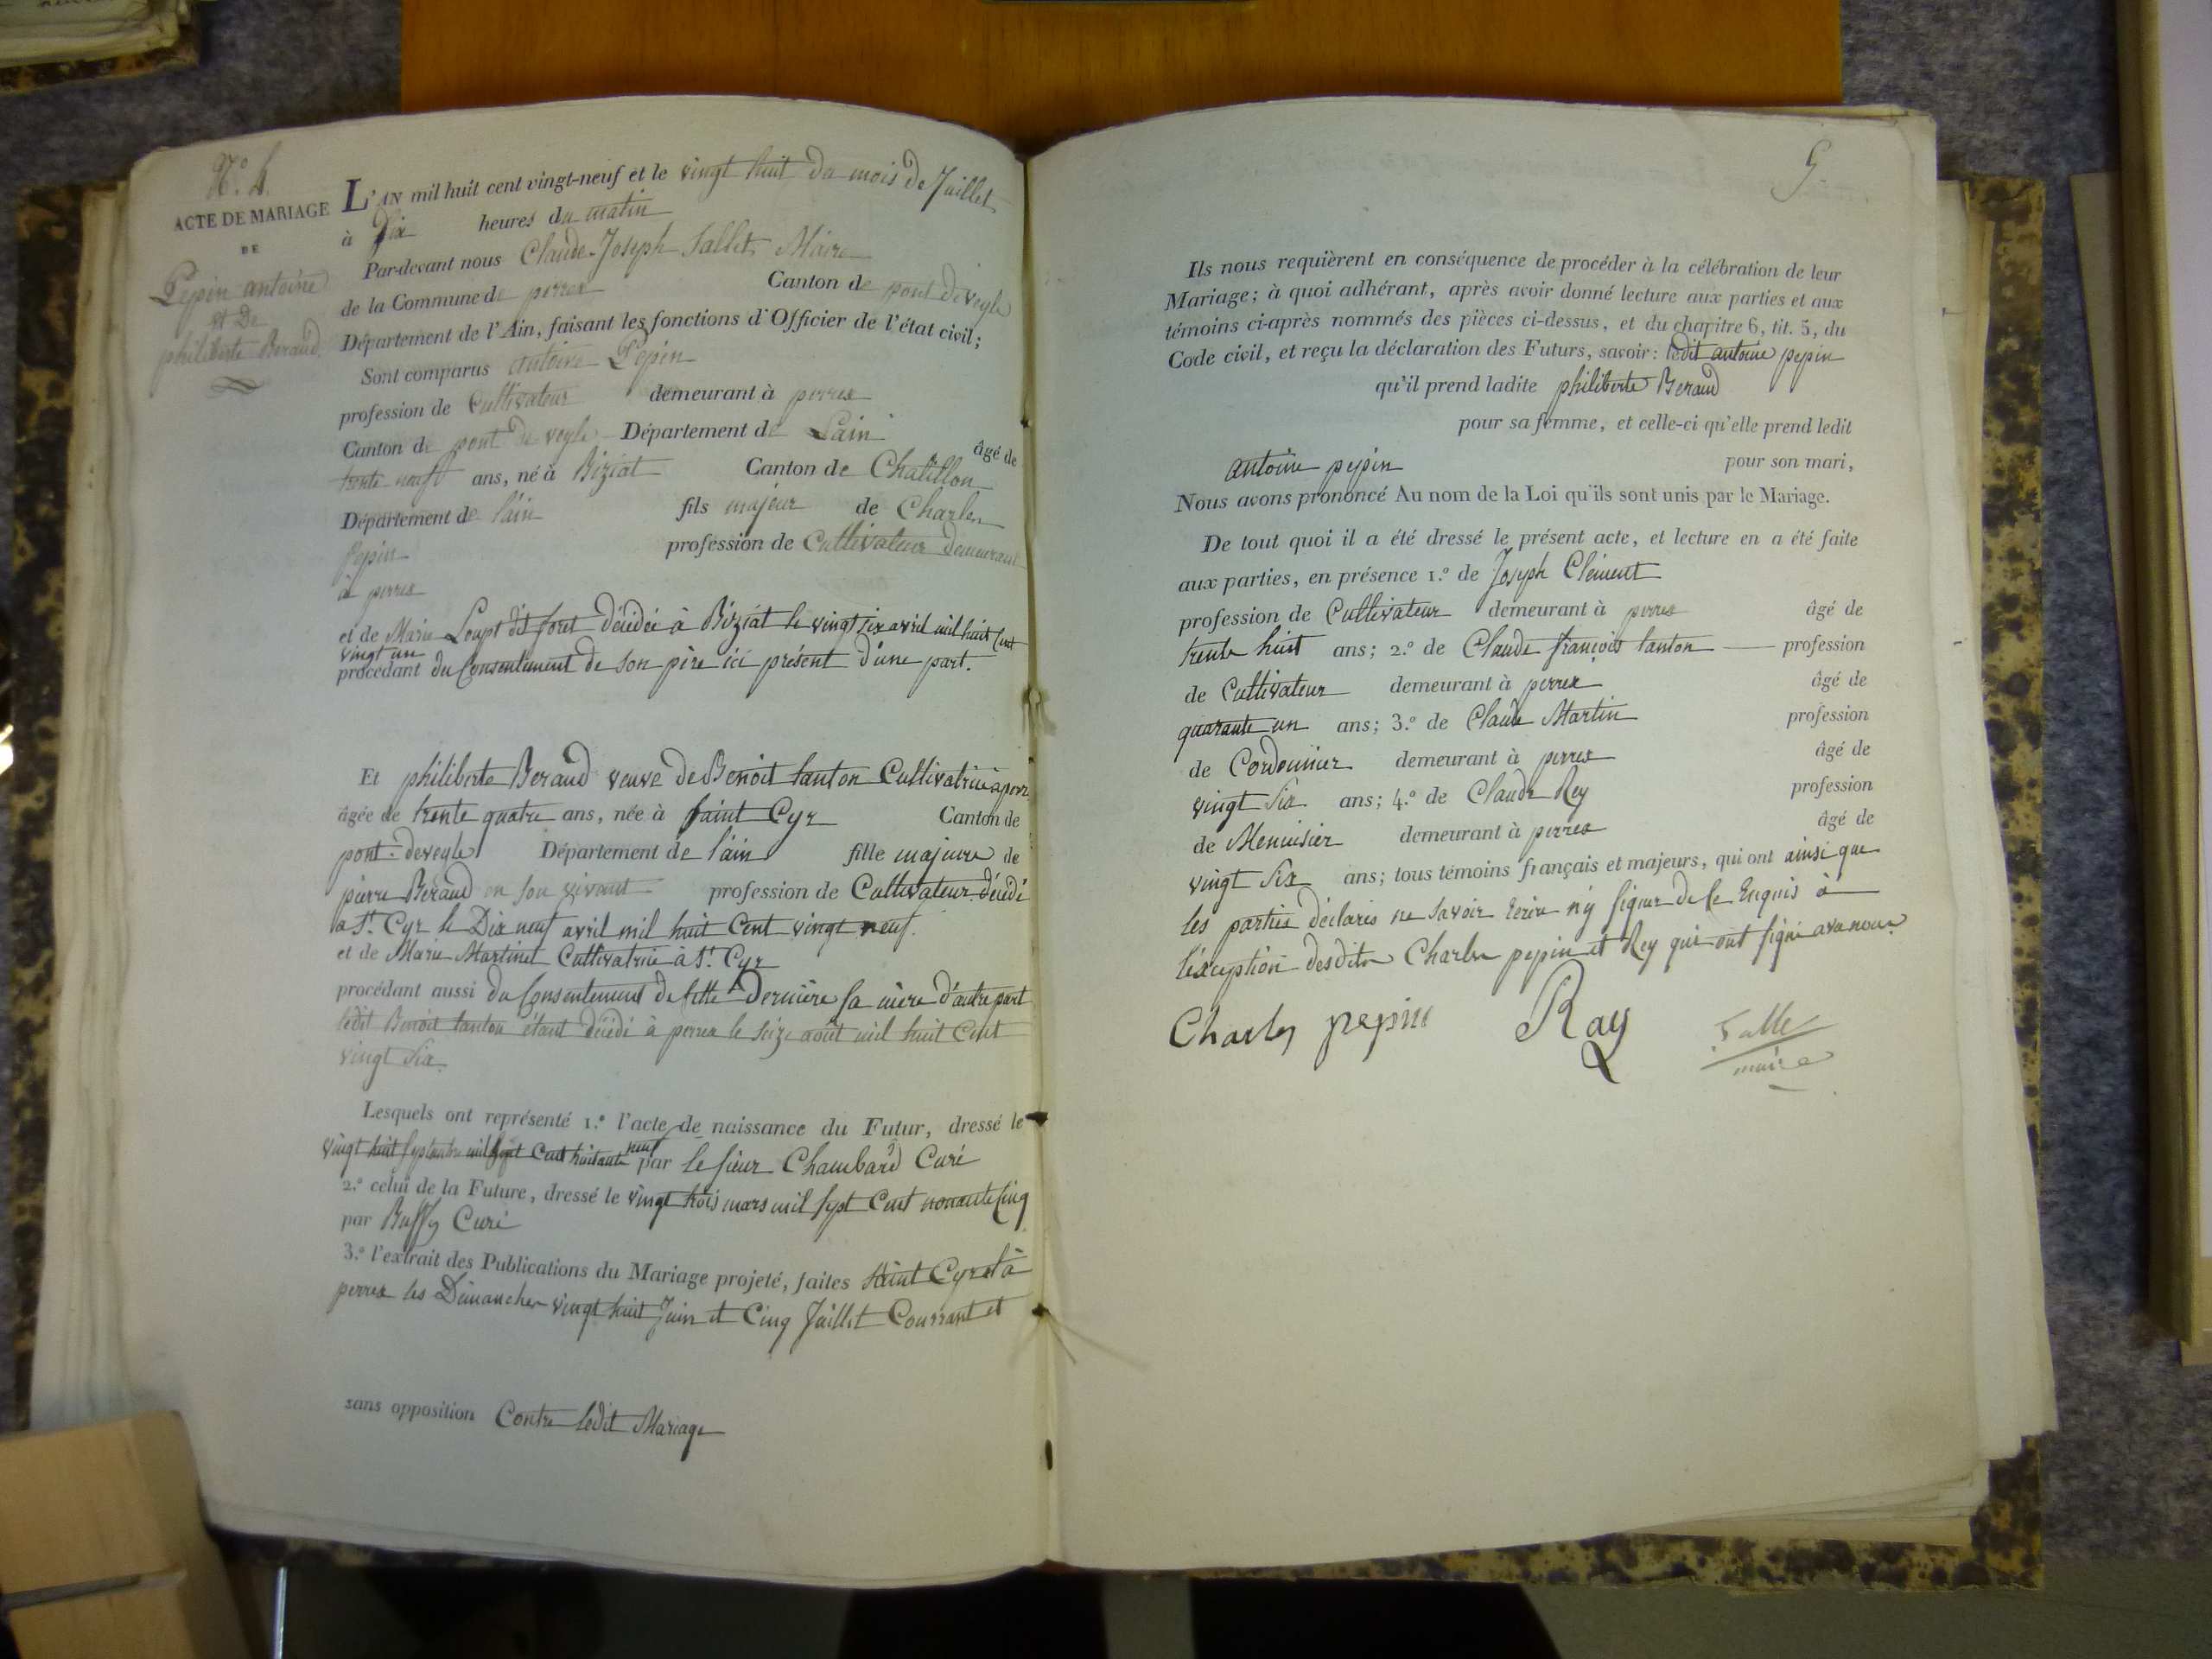 N.º 4.
ACTE DE MARIAGE
DE
Pepin antoine
et De
philiberte Beraud.
L'AN mil huit cent vingt-neuf et le vingt huit du mois de Juillet
à Dix heures du matin
Par-devant nous Claude-Joseph Sallet Maire
de la Commune de perrex Canton de pont de veyle
Département de l'Ain, faisant les fonctions d'Officier de l'état civil;
Sont comparus antoine Pepin
profession de Cultivateur demeurant à perrex
Canton de pont de veyle Département de Lain âgé de
trente neuf ans, né à Biziat Canton de Chatillon
Département de l'ain fils majeur de Charles
Pepin profession de Cultivateur demeurant
à perrex
et de Marie Loupt dit foret décédée à Biziat le vingt six avril mil huit Cent
vingt un
procédant du Consentement de son père ici présent d'une part.
Et philiberte Beraud veuve de Benoit tanton Cultivatrice à perre
âgée de trente quatre ans, née à saint Cyr Canton de
pont-deveyle Département de l'ain fille majeure de
pierre Beraud en son vivant profession de Cultivateur décédé
a St. Cyr le Dix neuf avril mil huit Cent vingt neuf.
et de Marie Martinet Cultivatrice à St. Cyr
procédant aussi du Consentement de cette Dernière sa mère d'autre part
ledit Benoit tanton étant décédé à perrex le seize août mil huit Cent
vingt six.
Lesquels ont représenté 1.º l'acte de naissance du Futur, dressé le
vingt huit septembre mil sept Cent huitante neuf par le sieur Chambard Curé
2.º celui de la Future, dressé le vingt trois mars mil sept Cent nonante Cinq
par Buffy Curé
3.º l'extrait des Publications du Mariage projeté, faites saint Cyr et à
perrex les Dimanches vingt huit Juin et Cinq Juillet Courrant et
sans opposition Contre ledit Mariage
5.
Ils nous requièrent en conséquence de procéder à la célébration de leur
Mariage; à quoi adhérant, après avoir donné lecture aux parties et aux
témoins ci-après nommés des pièces ci-dessus, et du chapitre 6, tit. 5, du
Code civil, et reçu la déclaration des Futurs, savoir: ledit antoine pepin
qu'il prend ladite philiberte Beraud
pour sa femme, et celle-ci qu'elle prend ledit
antoine pepin pour son mari,
Nous avons prononcé Au nom de la Loi qu'ils sont unis par le Mariage.
De tout quoi il a été dressé le présent acte, et lecture en a été faite
aux parties, en présence 1.º de Joseph Clément
profession de Cultivateur demeurant à perrex âgé de
trente huit ans; 2.º de Claude françois tanton profession
de Cultivateur demeurant à perrex âgé de
quarante un ans; 3.º de Claude Martin profession
de Cordonnier demeurant à perrex âgé de
vingt six ans; 4.º de Claude Rey profession
de Menuisier demeurant à perrex âgé de
vingt six ans; tous témoins français et majeurs, qui ont ainsi que
les parties déclarés ne savoir Ecrire n'y signer de ce Enquis à
l'éxception desdits Charles pepin et Rey qui ont signé avenous.
Charles pepin Ray Salle
maire